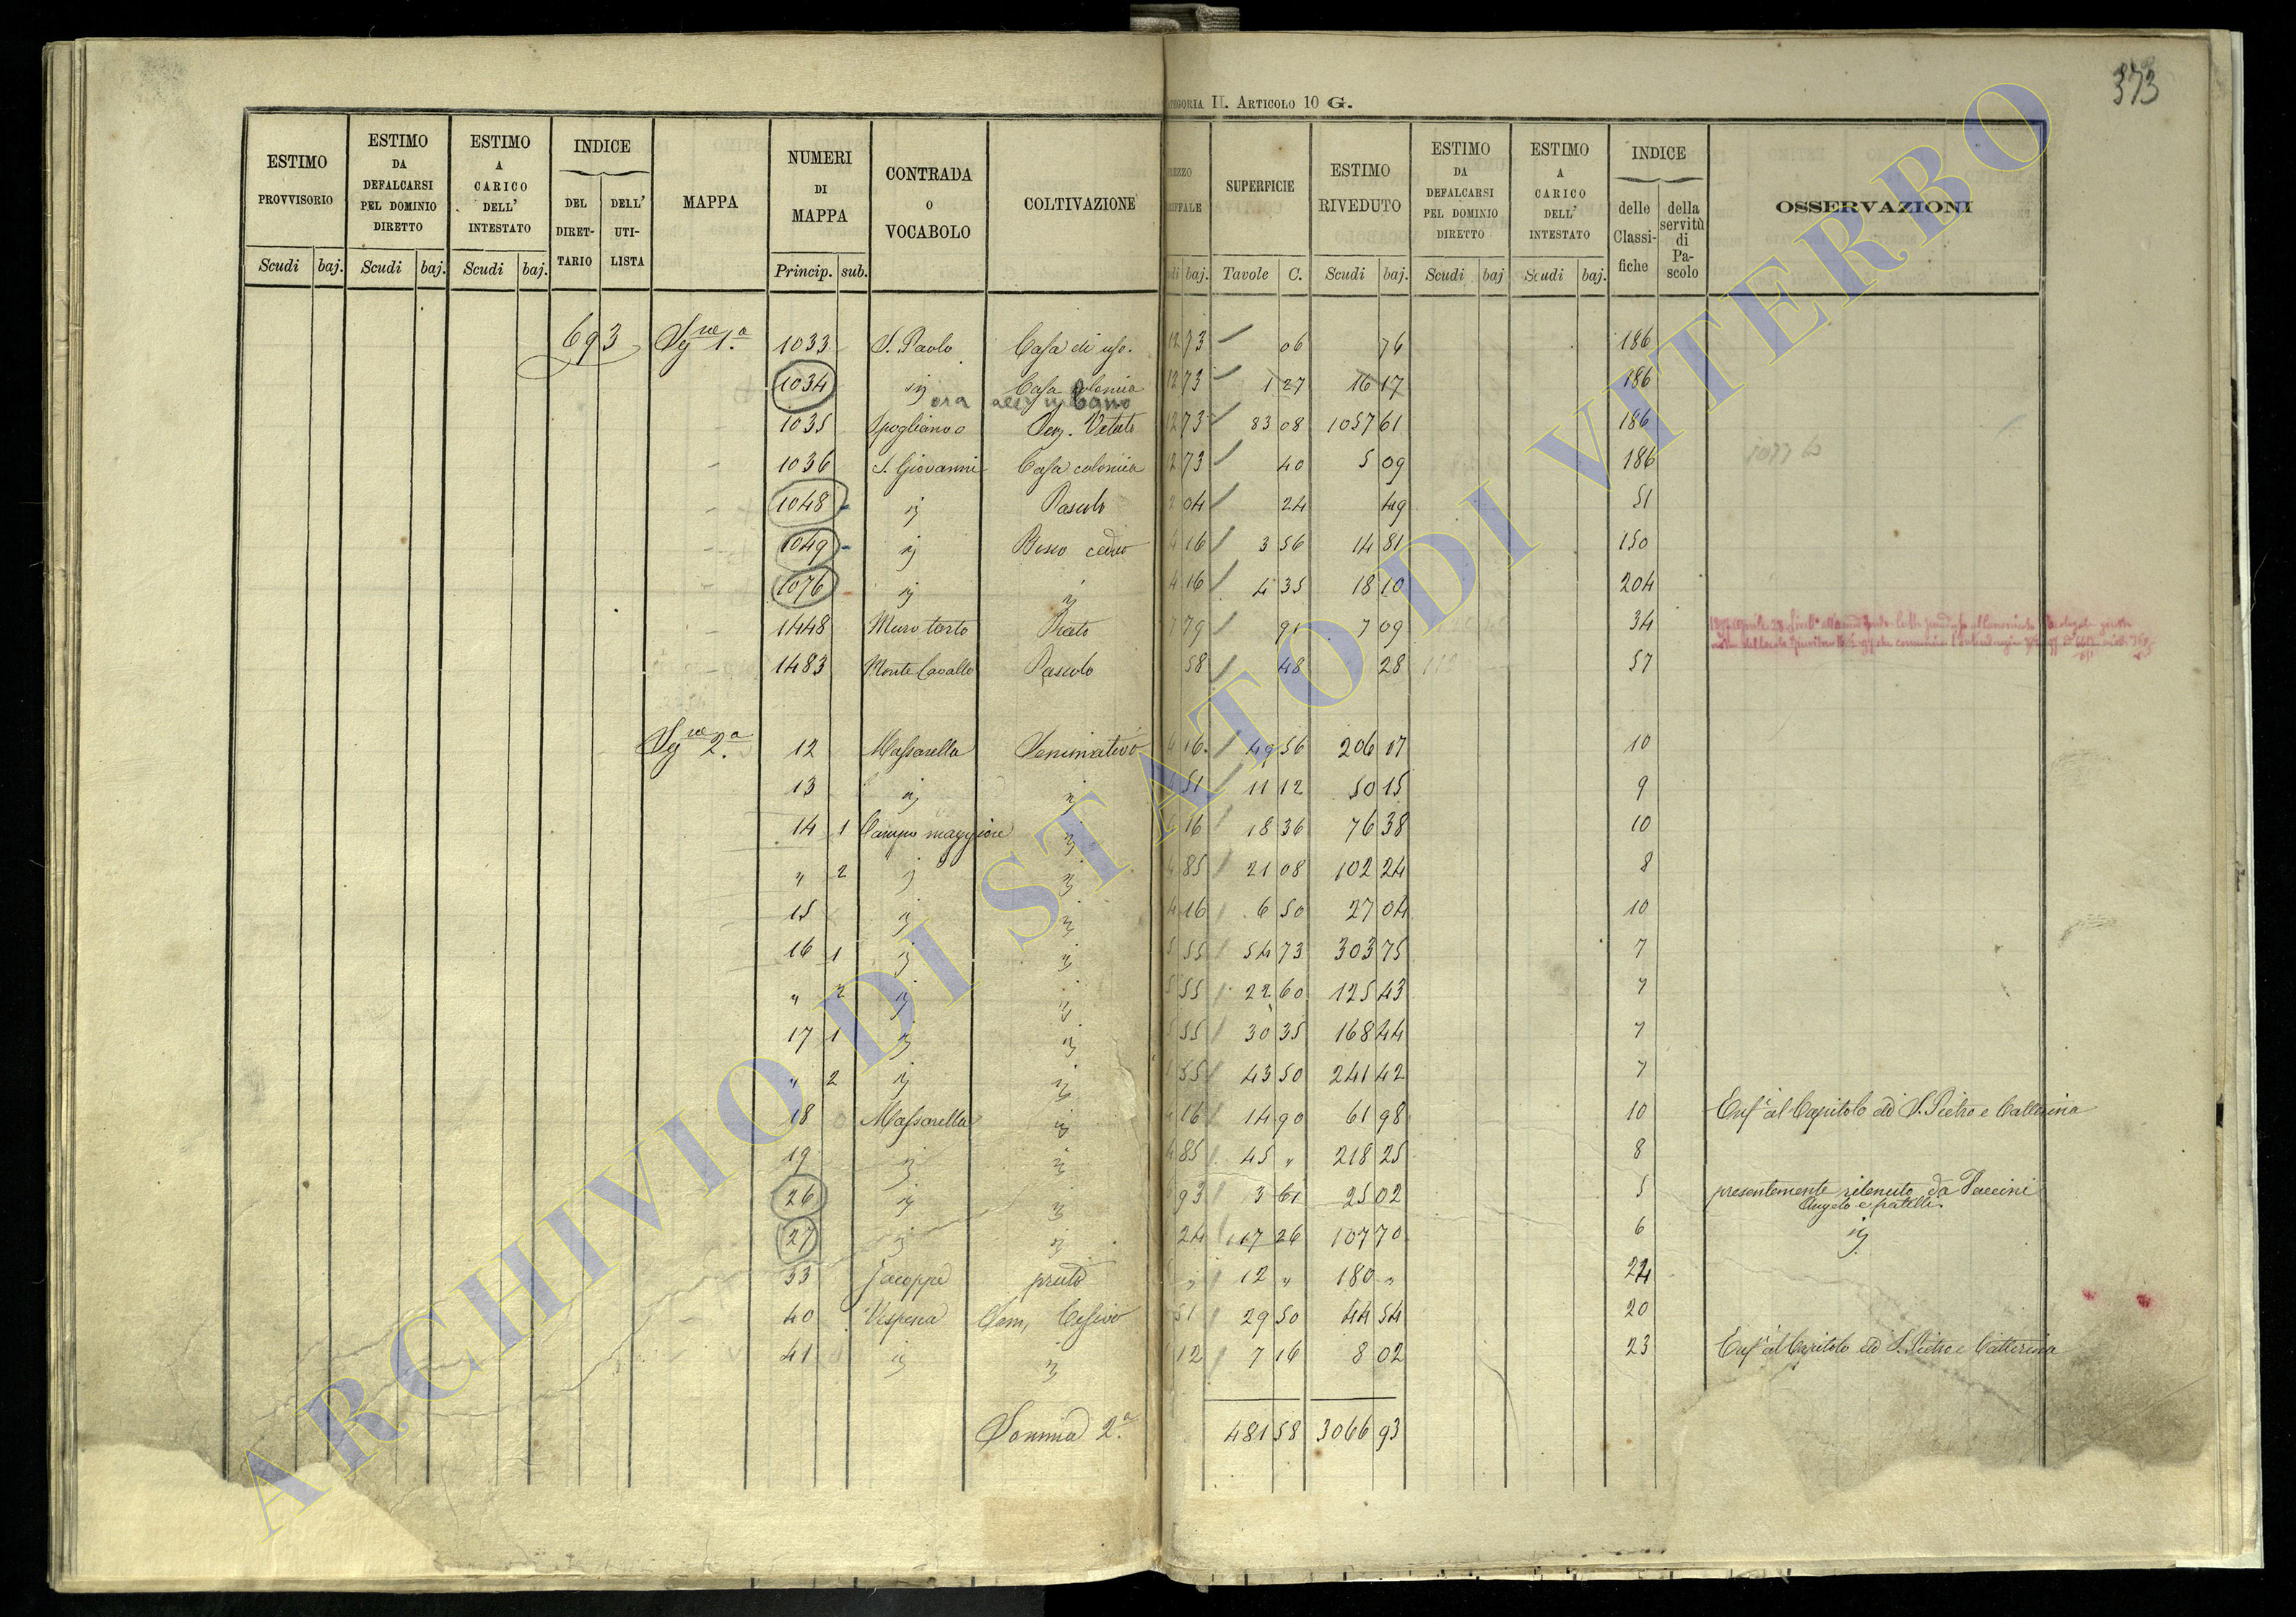 373
CATEGORIA II. ARTICOLO 10 G.
ESTIMO PROVVISORIO Scudi baj.
ESTIMO DA DEFALCARSI PEL DOMINIO DIRETTO Scudi baj.
ESTIMO A CARICO DELL' INTESTATO Scudi baj.
INDICE DEL DIRETTARIO DELL' UTILISTA
MAPPA
NUMERI DI MAPPA Princip. sub.
CONTRADA O VOCABOLO
COLTIVAZIONE
baj.
SUPERFICIE Tavole C.
ESTIMO RIVEDUTO Scudi baj.
ESTIMO DA DEFALCARSI PEL DOMINIO DIRETTO Scudi baj
ESTIMO A CARICO DELL' INTESTATO Scudi baj.
INDICE delle Classifiche della servitù di Pascolo
OSSERVAZIONI
693 1033 S. Paolo Casa di uso. 12 73 06 76 186
1034 Casa colonica 12 73 1 27 16 17 186
ora urbano
1035 Spogliano 12 73 83 08 1057 61 186
1036 S. Giovanni Casa colonica 12 73 40 5 09 186
1048 Pascolo 2 04 24 49 51
1049 Bosco ceduo 4 16 3 56 14 81 150
1076 4 16 4 35 18 10 204
1448 Muro torto Prato 7 79 91 7 09 34
1483 Monte Cavallo Pascolo 58 48 28 57
2.a 12 Massarella Seminativo 4 16 49 56 206 17 10
13 51 11 12 50 15 9
14 1 Campo maggiore 16 18 36 76 38 10
" 2 85 21 08 102 24 8
15 4 16 6 50 27 04 10
16 1 5 55 54 73 303 75 7
" 2 5 55 22 60 125 43 7
17 1 55 30 35 168 44 7
" 2 55 43 50 241 42 7
18 Massarella 16 14 90 61 98 10 Enf. al Capitolo di S. Pietro e Catterina
19 4 85 45 " 218 25 8
26 93 3 61 25 02 5 presentemente ritenuto da Paccini
Angelo e fratelli
27 24 17 26 107 70 6
33 prato " 12 " 180 " 24
40 Vespena Sem. 51 29 50 44 54 20
41 12 7 16 8 02 23 Enf. al Capitolo di S. Pietro e Catterina
Somma 2.a 481 58 3066 93
ARCHIVIO DI STATO DI VITERBO